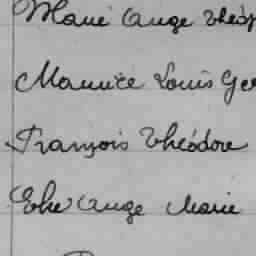 Marie Ange Théo
Maurice Louis Ger
François Théodore
Elie Ange Marie